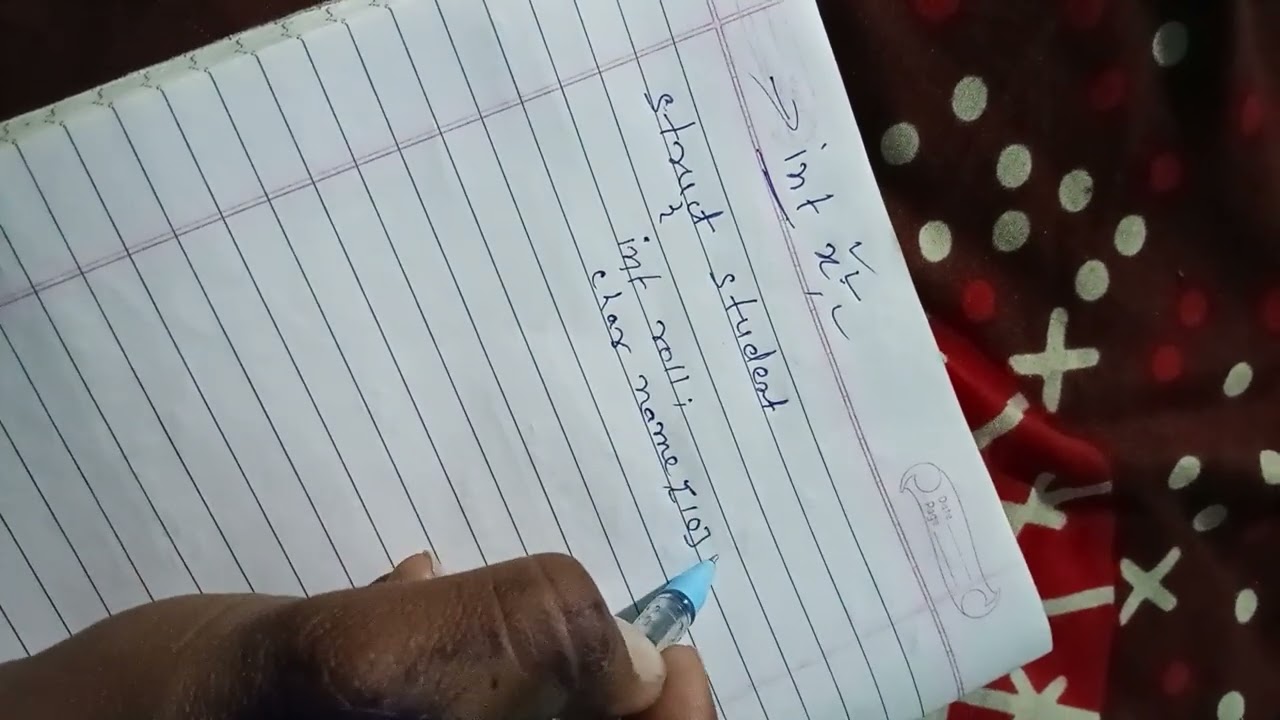 → int x;
struct student
{
int roll;
char name[10]
Date
Page